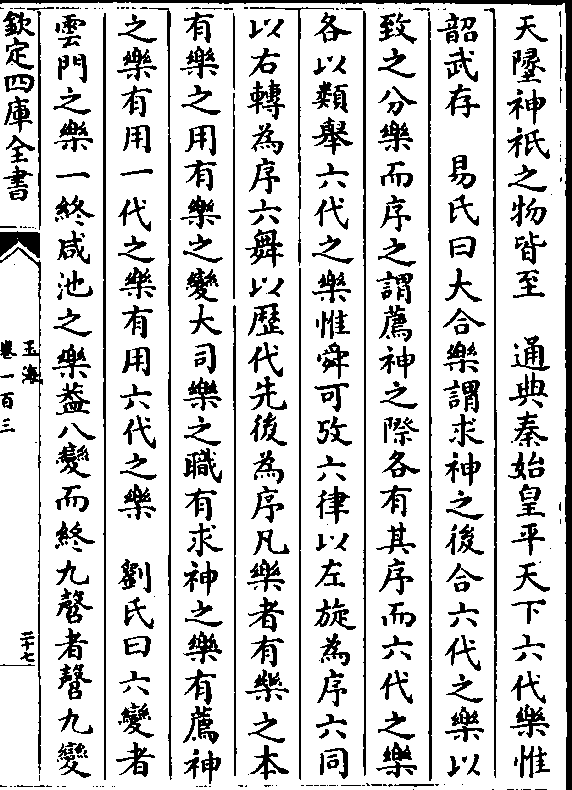 天墬神祇之物皆至　通典秦始皇平天下六代樂惟
韶武存　易氏曰大合樂謂求神之後合六代之樂以
致之分樂而序之謂薦神之際各有其序而六代之樂
各以類舉六代之樂惟舜可攷六律以左旋為序六同
以右轉為序六舞以歷代先後為序凡樂者有樂之本
有樂之用有樂之變大司樂之職有求神之樂有薦神
之樂有用一代之樂有用六代之樂　劉氏曰六變者
雲門之樂一終咸池之樂葢八變而終九磬者磬九變
欽定四庫全書
玉海
卷一百三
二十七